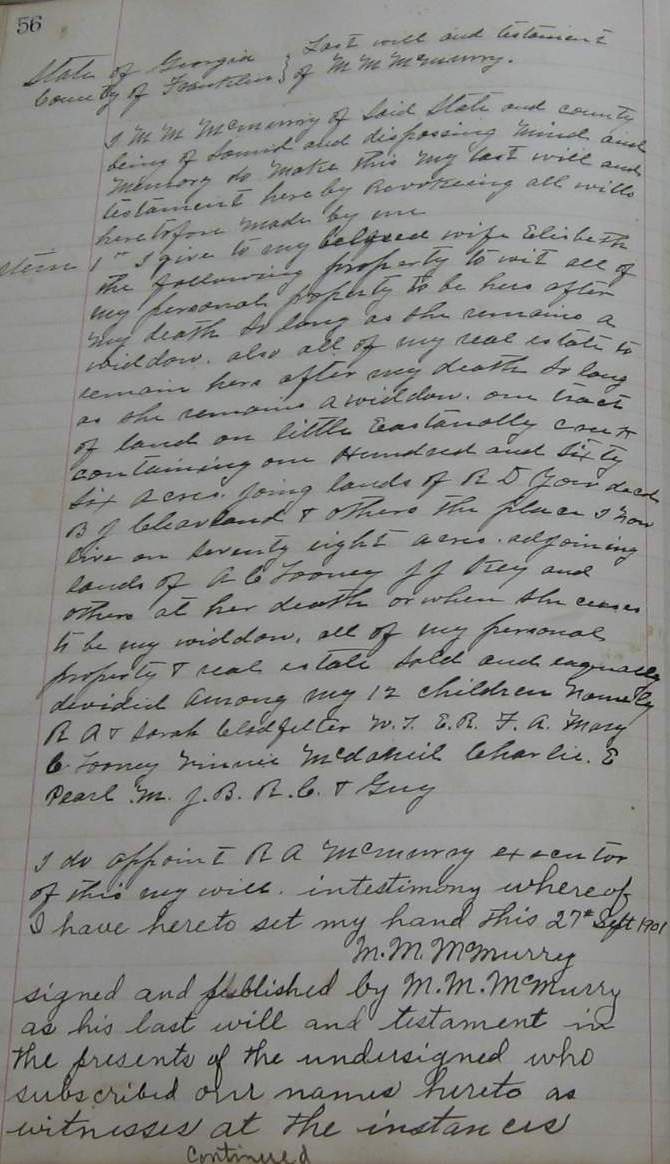 56
State of Georgia } Last will and testament
County of Franklin } of M M McMurry.
I M M McMurry of Said State and county
being of Sound and dispossing Mind and
Memory do Make this My last will and
testament hereby Revokeing all wills
heretofore Made by me
Item 1st I give to my beloved wife Elisbeth
the following property to wit all of
my personal property to be hers after
my death So long as She remains a
widdow. also all of my real estate to
remain hers after my death So long
as She remains a widdow. one tract
of land on little Eastanolly creek
containing one Hundred and Sixty
Six acres. joing lands of R D decd
B J Cleaveland & others the place I now
live on Seventy eight acres. adjoining
lands of A C Looney J J Key and
others at her death or when She ceases
to be my widdow, all of my personal
property & real estate Sold and eaqually
devidid among my 12 children namely
R A & Sarah Clodfelter W. T. E. R. F. A. Mary
C. Looney Minnie Mcdaneil Charlie. E
Pearl. M. J. B. R. C. & Guy
I do appoint R A McMurry executor
of this my will. intestimony whereof
I have hereto set my hand this 27th Sept 1901
M. M. McMurry
signed and published by M. M. McMurry
as his last will and testament in
the presents of the undersigned who
subscribed our names hereto as
witnesses at the instances
Continued